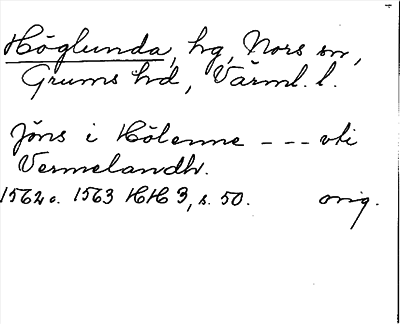 Höglunda, hg, Nors sn,
Grums hd, Värml. l.
Jöns i Hölenne --- vti
Vermelandh.
1562 o. 1563 HH 3, s. 50. orig.